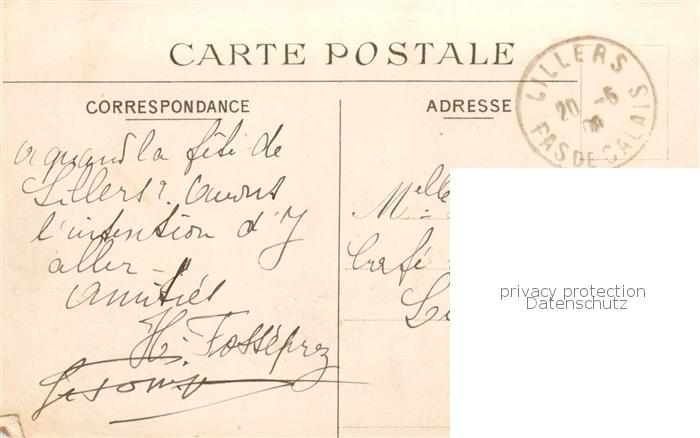 CARTE POSTALE
LILLERS
20 -6
PAS DE CALAIS
CORRESPONDANCE
ADRESSE
a quand la fête de
Lillers? avons
l'intention d'y
aller -
Amitiés
H. Fosséprez
Melle
Café
Li
privacy protection
Datenschutz